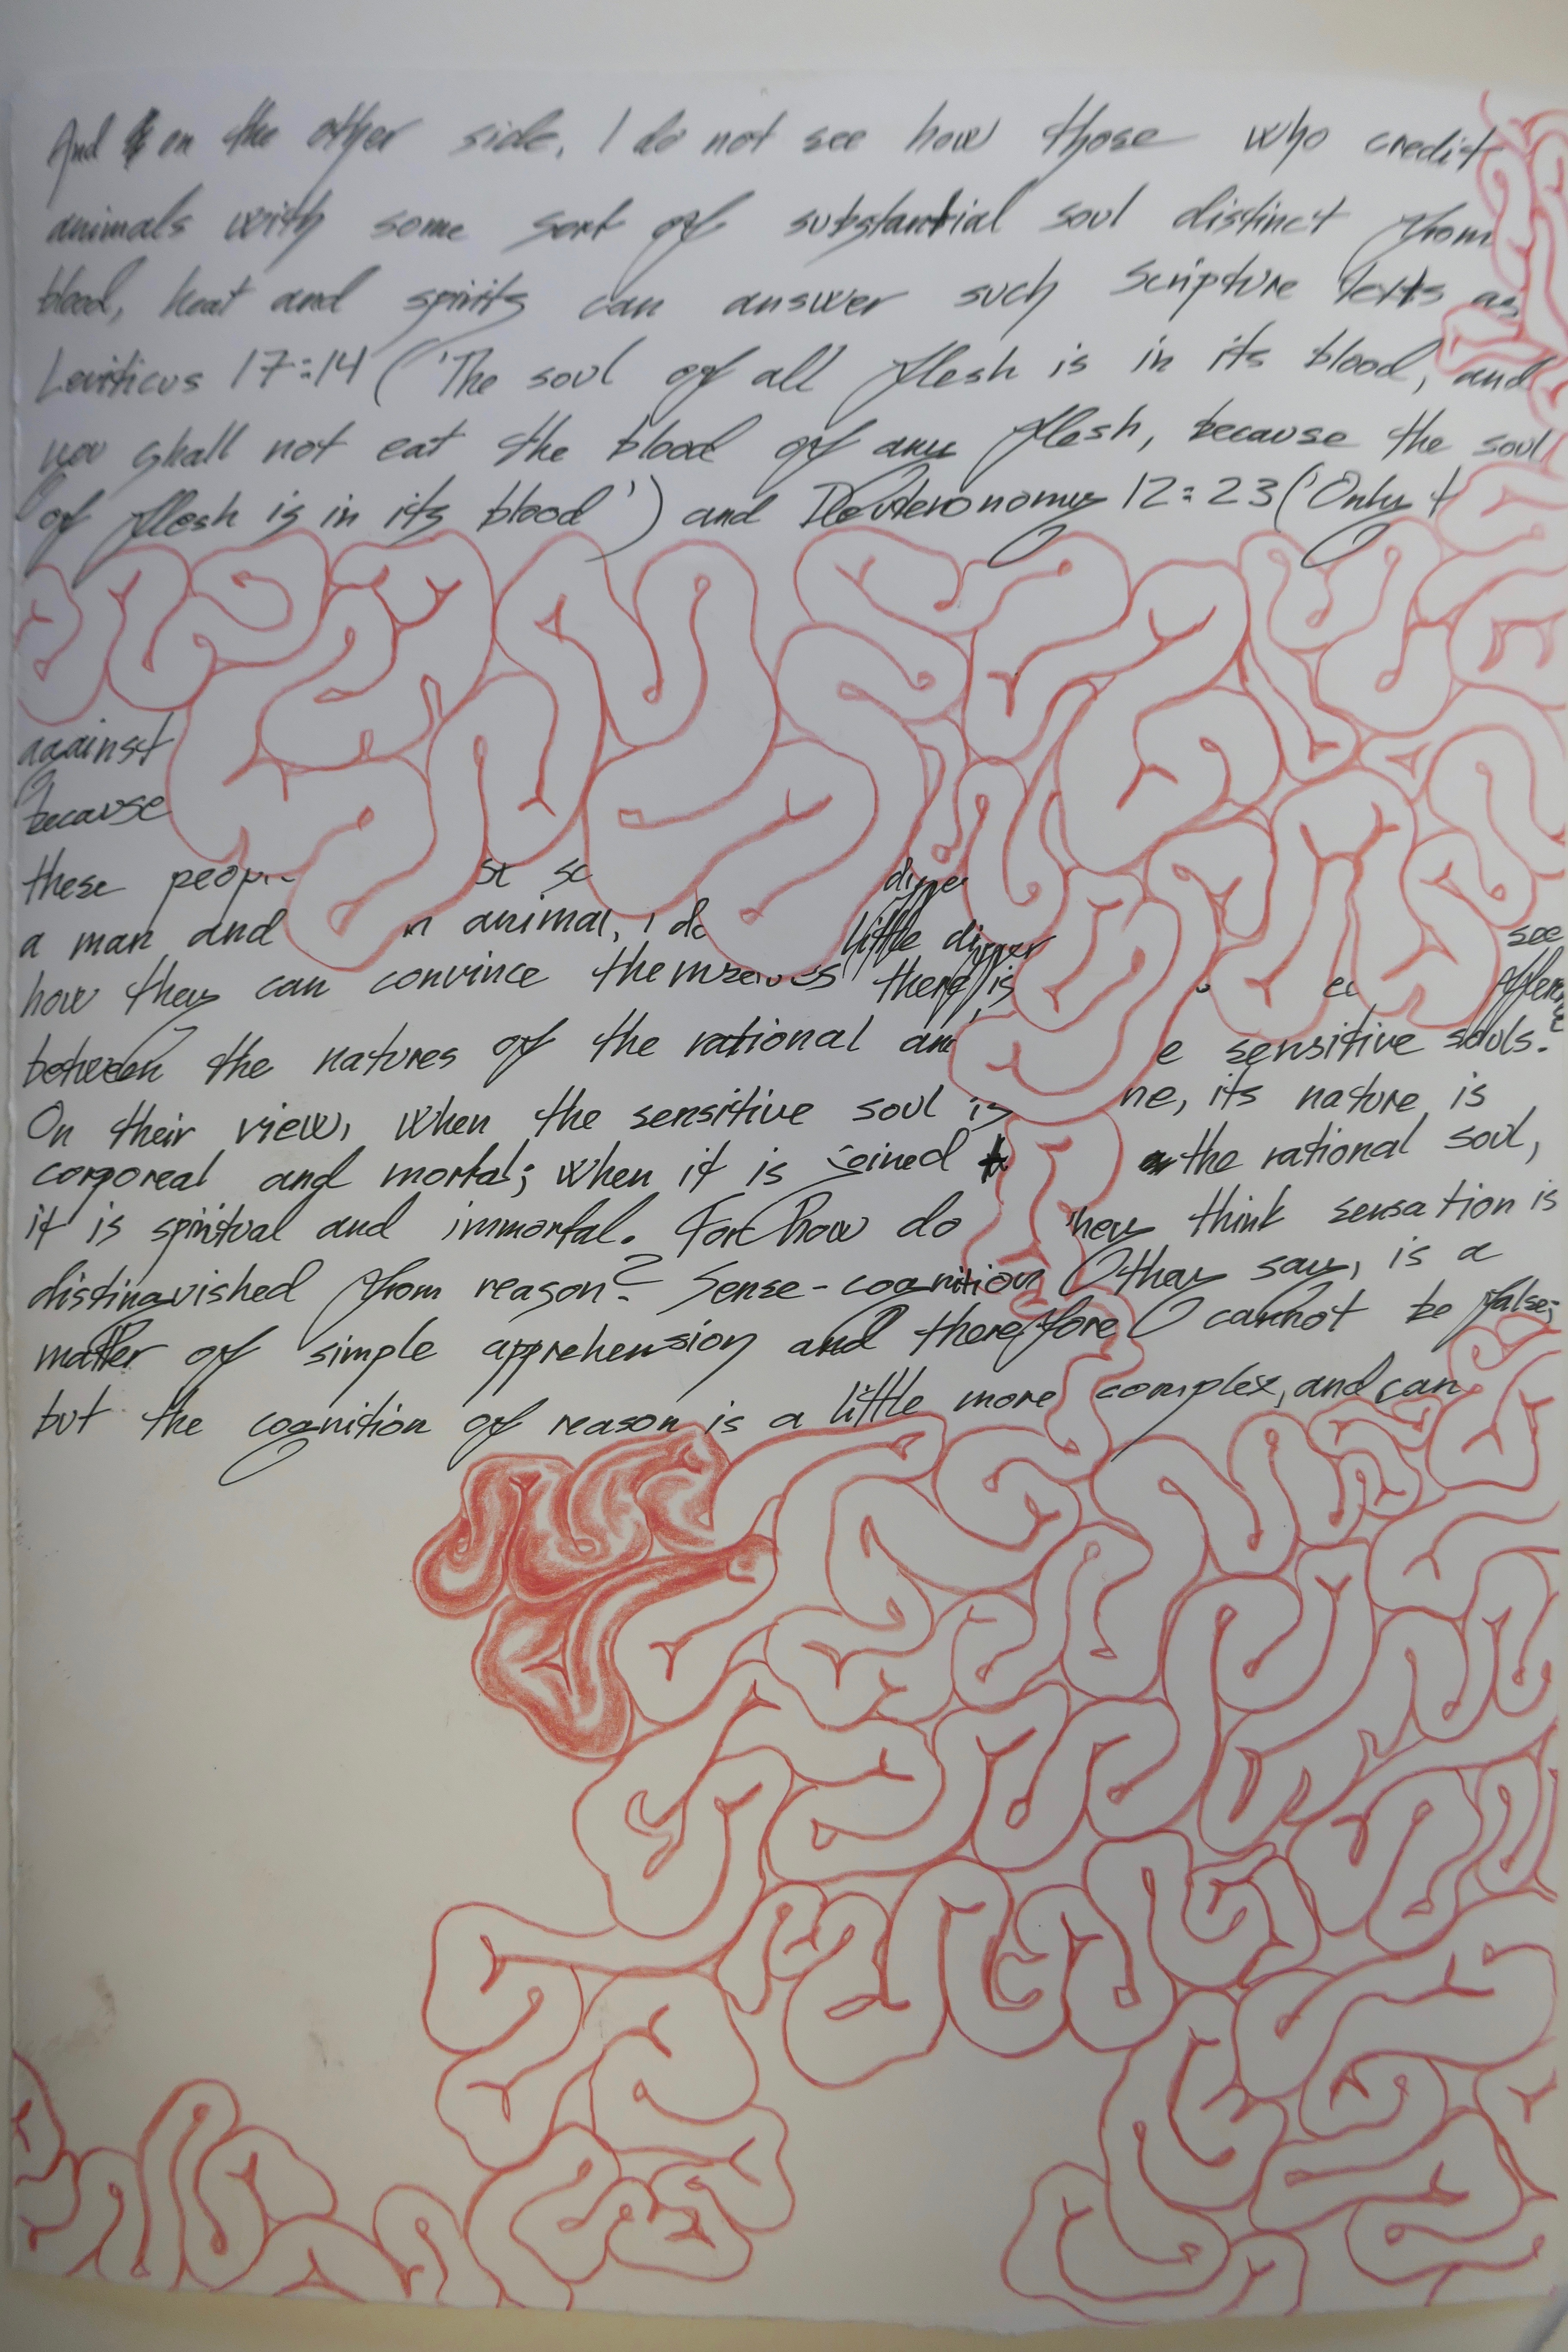 And on the other side, I do not see how those who credit
animals with some sort of substantial soul distinct from
blood, heat and spirits can answer such Scripture texts as
Leviticus 17:14 ('The soul of all flesh is in its blood, and
you shall not eat the blood of any flesh, because the soul
of flesh is in its blood') and Deuteronomy 12:23 ('Only t
against
because
these peop st so diffe
a man and n animal, I do little differ see
how they can convince themselves there is
between the natures of the rational an e sensitive souls.
On their view, when the sensitive soul is ne, its nature is
corporeal and mortal; when it is joined the rational soul,
it is spiritual and immortal. For how do hey think sensation is
distinguished from reason? Sense-cognition, they say, is a
matter of simple apprehension and therefore cannot be false;
but the cognition of reason is a little more complex, and can